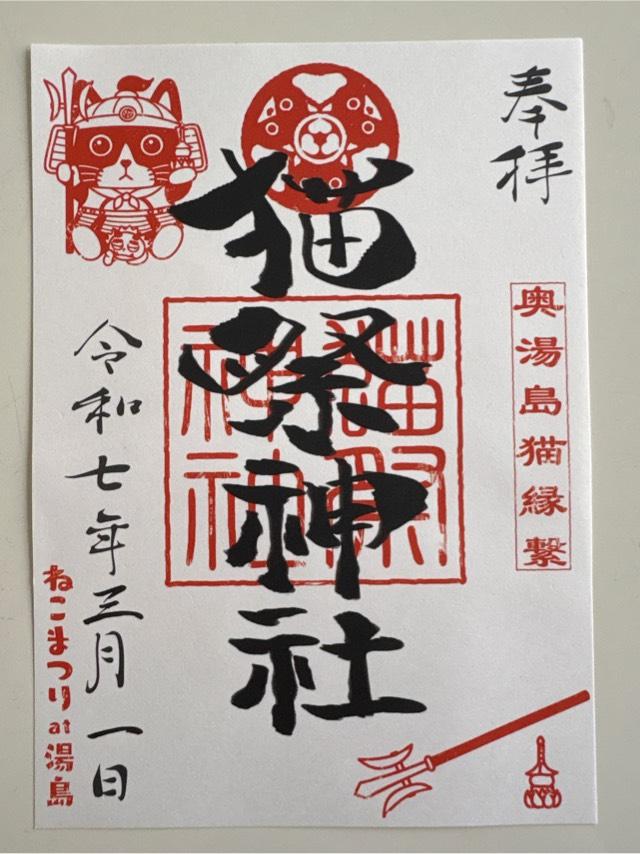 奉拝
奥湯島猫縁繋
猫祭神社
猫祭
神社
令和七年三月一日
ねこまつり at 湯島